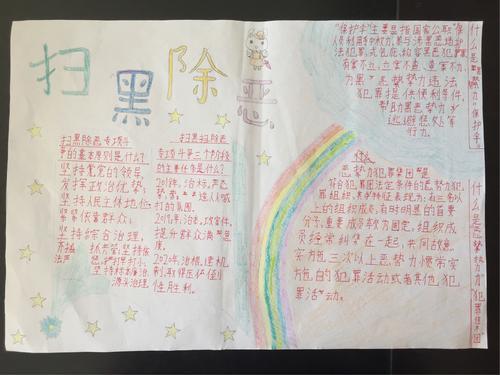 扫黑除恶
扫黑除恶专项斗
争的基本原则是什么?
坚持党的领导,
发挥政治优势;
坚持人民主体地位,
紧紧依靠群众;
坚持综合治理,
坚持
法严
坚持标本兼治,
源头治理
扫黑扫除恶
专项斗争三个阶段
的主要任务是什么?
2018年,治标,严
打的氛围。
2019年,治本,攻案件,
提升群众满意
度。
2020年,治根,建机
制,取得压倒
性胜利。
什么是黑恶势力"保护伞"
"保护伞"主要是指国家公职
人员利用手中权力,参与涉黑涉恶违
法犯罪,或包庇、纵容黑恶犯罪,
有案不立、立案不查、查案不力,
为黑恶势力违法
犯罪提供便利条件,
帮助黑恶势力
逃避惩处等
行为。
什么是恶势力"犯罪集团"
恶势力犯罪集团是
符合犯罪集团法定条件的恶势力犯
罪组织,其特征表现为:有三名以
上的组织成员,有明显的首要
分子,重要成员较为固定,组织成
员经常纠集在一起,共同故意
实施三次以上恶势力惯常实
施的犯罪活动或者其他犯
罪活动。